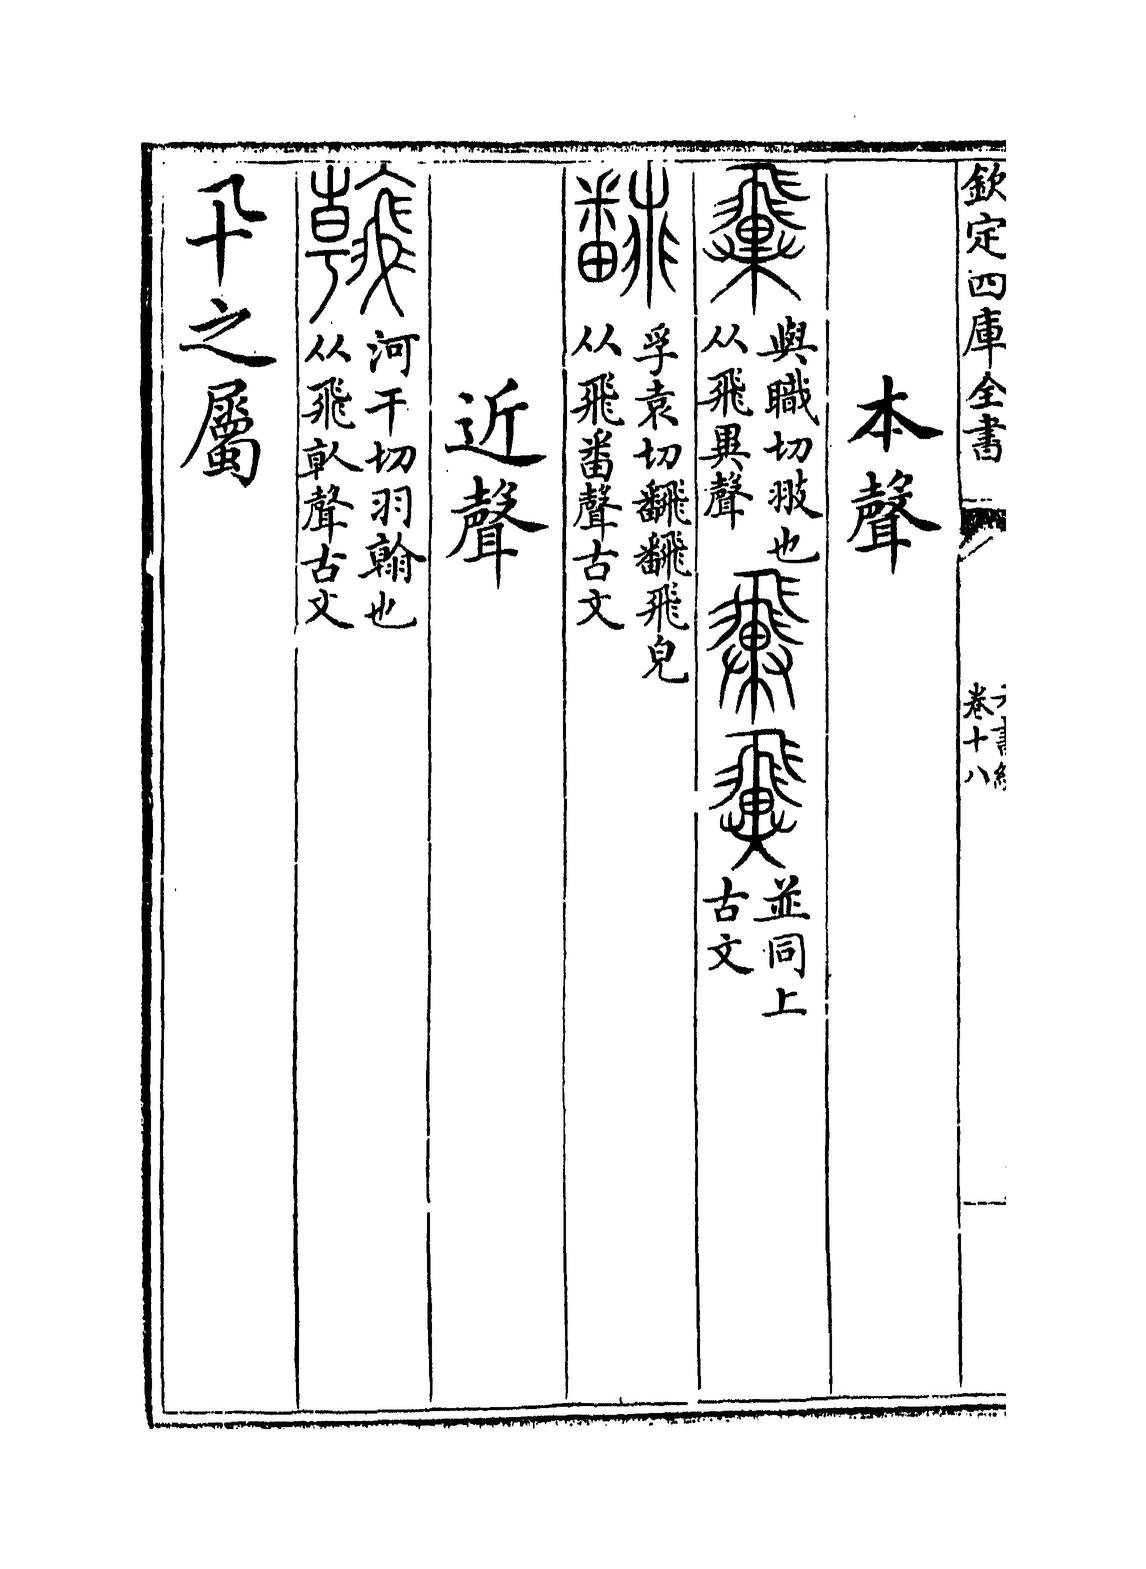 欽定四庫全書
卷十八
本聲
與職切翄也
从飛異聲
並同上
古文
孚袁切飜飜飛皃
从飛番聲古文
近聲
河干切羽翰也
从飛倝聲古文
卂之屬